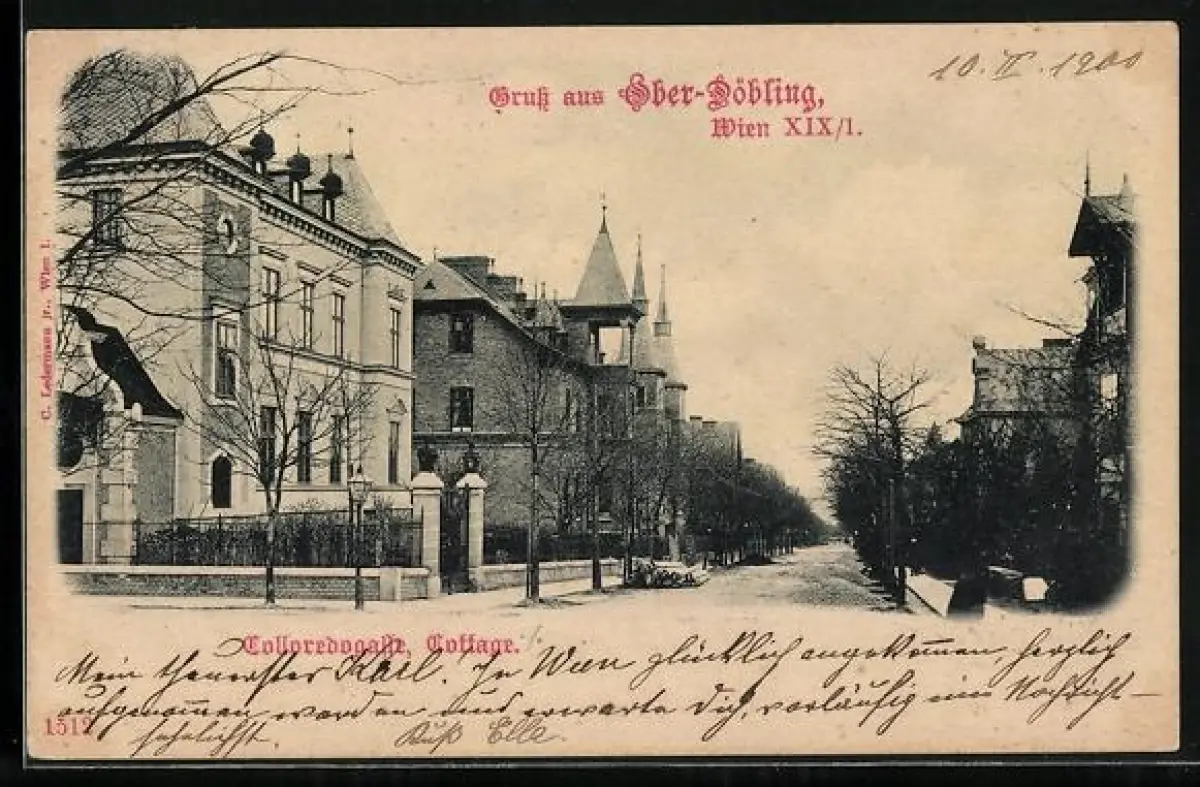 10. II. 1900
Gruß aus Ober-Döbling,
Wien XIX/1.
C. Ledermann jr., Wien I.
Colloredogasse, Cottage.
Mein theuerster Karl! In Wien glücklich angekommen, herzlich
aufgenommen worden und erwarte Dich, vorläufig nur Nachricht
sehnlichst. Kuß Elle.
1517